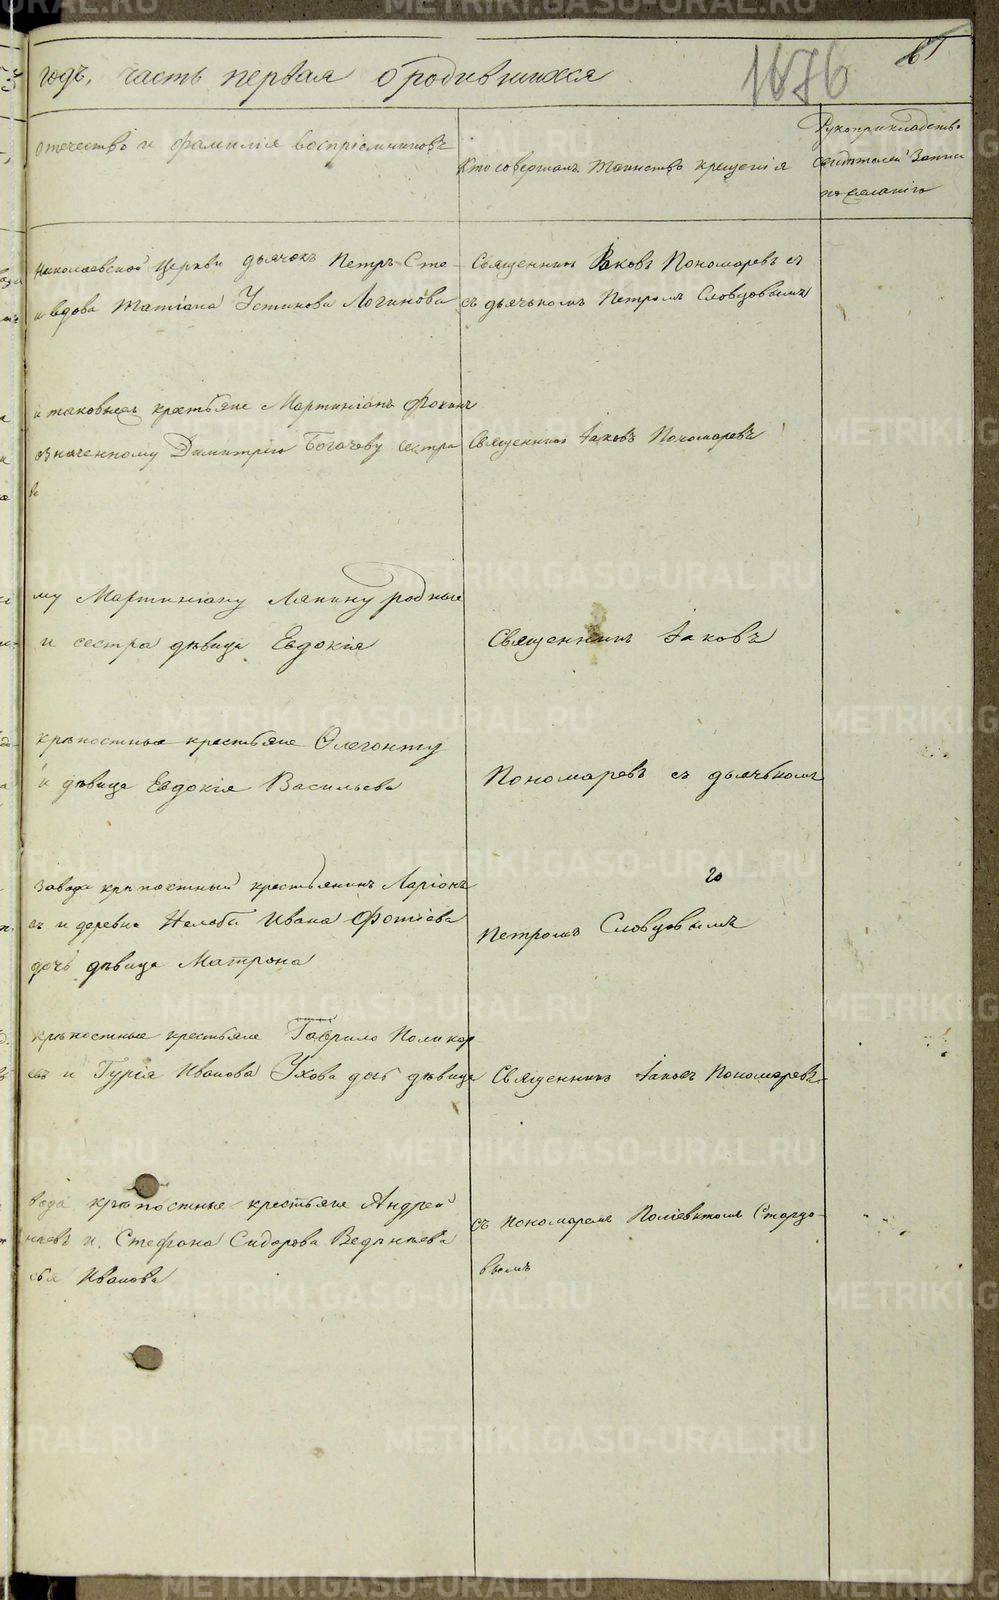 годъ, часть первая о родившихся
1676
отечество и фамилія воспріемниковъ
Кто совершалъ таинство крещенія
Рукоприкладство
свидѣтелей записи
по желанію
Николаевской Церкви дьячокъ Петръ Сте
и вдова Татіана Устинова Логинова
Священникъ Іаковъ Пономаревъ съ
съ дьячькомъ Петромъ Словцовымъ
и таковыеж крестьяне Мартиніанъ Фокинъ
означенному Димитрію Богачеву сестра
Священникъ Іаковъ Пономаревъ
му Мартиніану Ляпину родные
и сестра дѣвица Евдокія
Священникъ Іаковъ
крѣпостные крестьяне
и дѣвица Евдокія Васильева
Пономаревъ съ дьячькомъ
завода крѣпостный крестьянинъ Ларіонъ
и деревни Ивана Фотіева
дочь дѣвица Матрона
Петромъ Словцовымъ
крѣпостные крестьяне Гаврило Поликар
и Гурія Иванова Ухова дочь дѣвица
Священникъ Іаковъ Пономаревъ
вода крѣпостные крестьяне Андрей
и Стефана Сидорова Ведрнцева
Иванова
съ пономаремъ Поліевктомъ Старцо
вымъ
METRIKI.GASO-URAL.RU